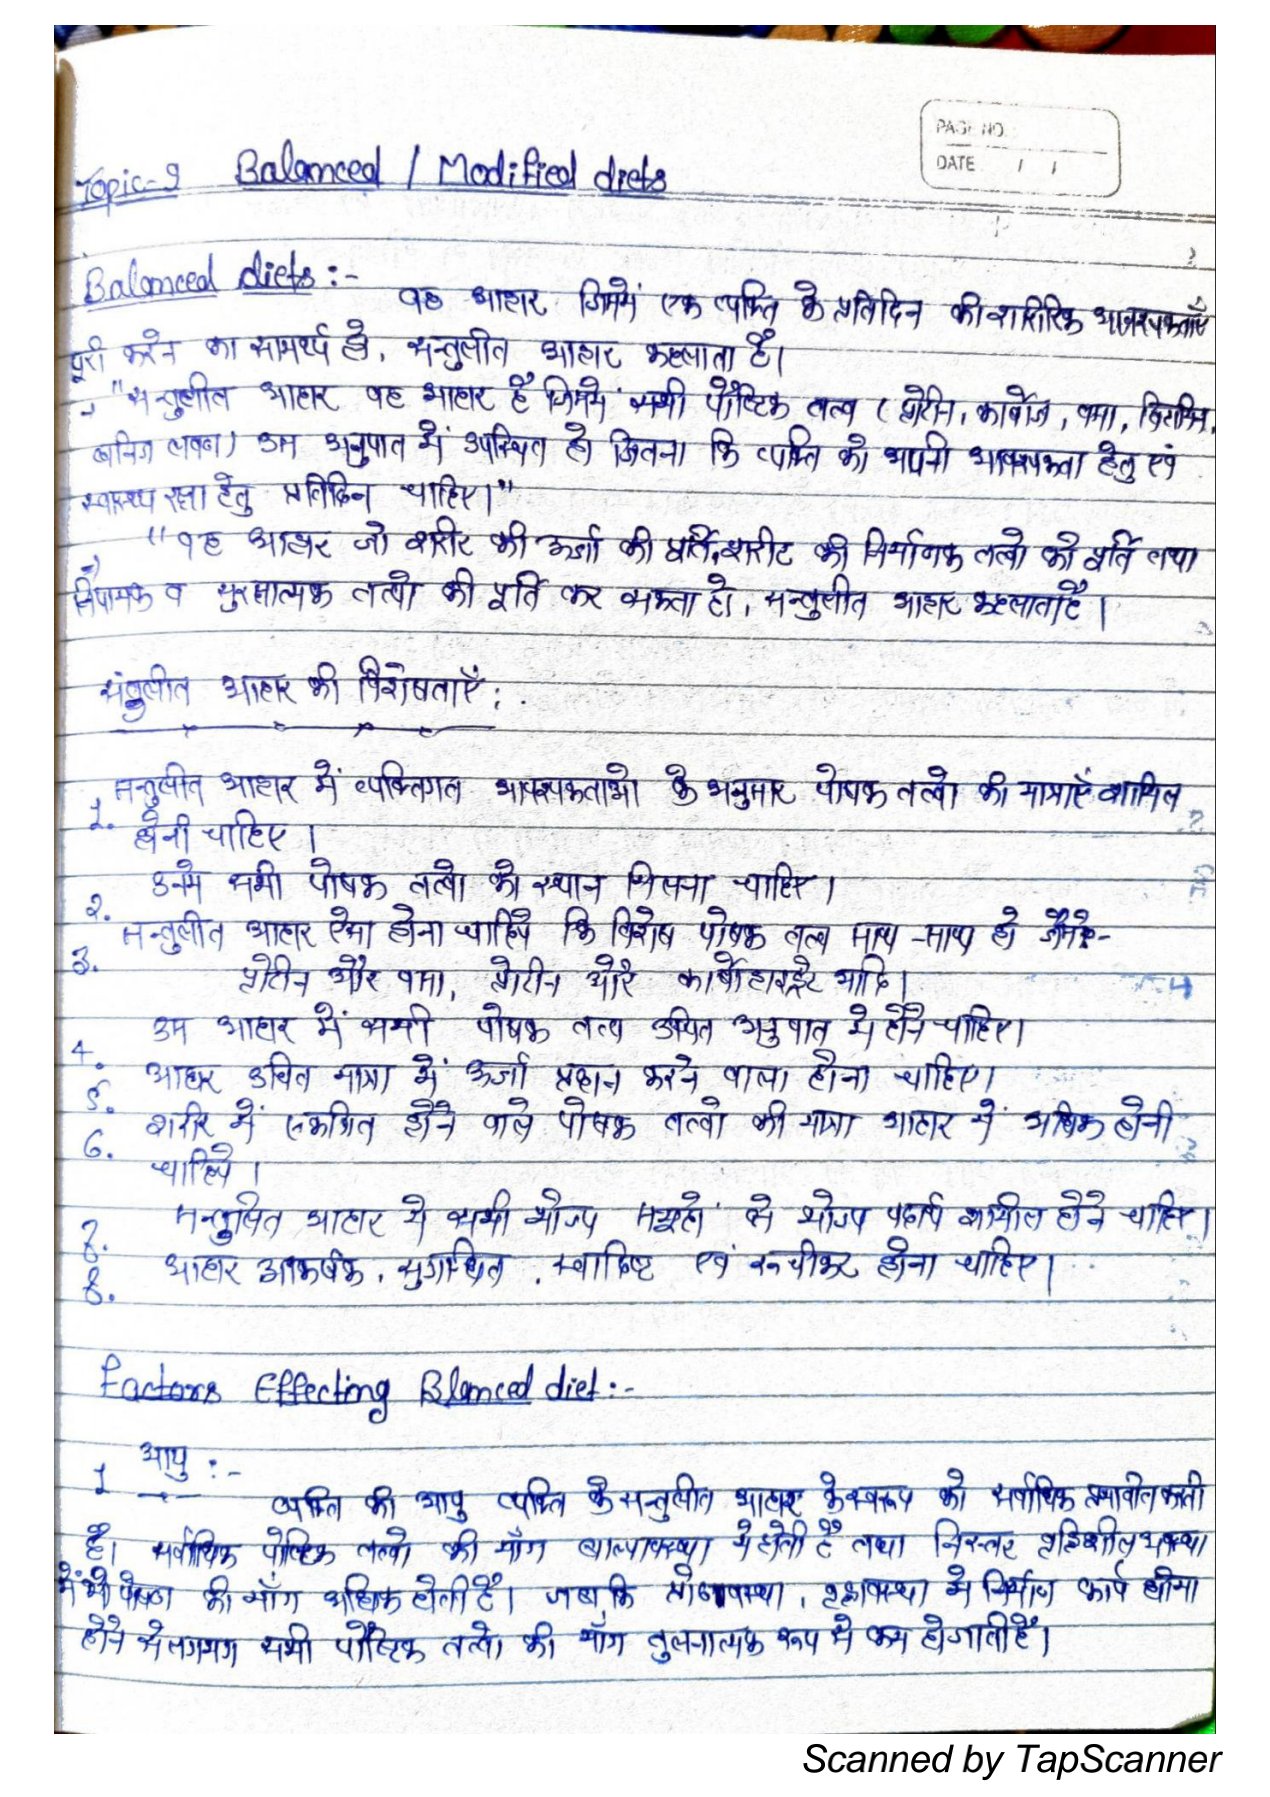 PAGE NO.
DATE / /
Topic-9 Balanced / Modified diets
Balanced diets :-
वह आहार जिसमें एक व्यक्ति के प्रतिदिन की शारीरिक आवश्यकताएँ
पूरी करने का सामर्थ्य हो, सन्तुलीत आहार कहलाता है।
"सन्तुलीत आहार वह आहार है जिसमें सभी पौष्टिक तत्व (प्रोटीन, कार्बोज, वसा, विटामिन,
खनिज लवण) उस अनुपात में उपस्थित हो जितना कि व्यक्ति को अपनी आवश्यकता हेतु एवं
स्वास्थ्य रक्षा हेतु प्रतिदिन चाहिए।"
"वह आहार जो शरीर की ऊर्जा की पूर्ति, शरीर की निर्माणक तत्वो की पूर्ति तथा
नियामक व सुरक्षात्मक तत्वो की पूर्ति कर सकता हो, सन्तुलीत आहार कहलाता है।
संतुलीत आहार की विशेषताएँ :
1. सन्तुलीत आहार में व्यक्तिगत आवश्यकताओ के अनुसार पोषक तत्वो की मात्राएँ शामिल
होनी चाहिए।
2. उनमे सभी पोषक तत्वो को स्थान मिलना चाहिए।
3. सन्तुलीत आहार ऐसा होना चाहिये कि विशेष पोषक तत्व साथ-साथ हो जैसे-
प्रोटीन और वसा, प्रोटीन और कार्बोहाइड्रेट आदि।
4. उस आहार में सभी पोषक तत्व उचित अनुपात मे होने चाहिए।
5. आहार उचित मात्रा में ऊर्जा प्रदान करने वाला होना चाहिए।
6. शरीर में एकत्रित होने वाले पोषक तत्वो की मात्रा आहार में अधिक होनी
चाहिये।
7. सन्तुलित आहार मे सभी भोज्य समूहों से भोज्य पदार्थ शामील होने चाहिए।
8. आहार आकर्षक, सुगन्धित, स्वादिष्ट एवं रूचीकर होना चाहिए।
Factors Effecting Blanced diet :-
1 आयु :-
व्यक्ति की आयु व्यक्ति के सन्तुलीत आहार के स्वरूप को सर्वाधिक प्रभावीत करती
है। सर्वाधिक पोष्टिक तत्वो की माँग बाल्यावस्था मे होती है तथा निरन्तर वृद्धिशील अवस्था
में भी पोषण की माँग अधिक होती है। जबकि प्रोढावस्था, वृद्धावस्था मे निर्माण कार्य क्षीण
होने से लगभग सभी पौष्टिक तत्वो की माँग तुलनात्मक रूप से कम हो जाती है।
Scanned by TapScanner